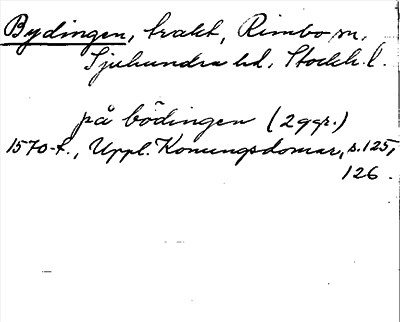 Bydingen, trakt, Rimbo sn,
Sjuhundra hd, Stockh. l.
på bödingen (2 ggr.)
1570-t., Uppl. Konungsdomar, s. 125,
126.